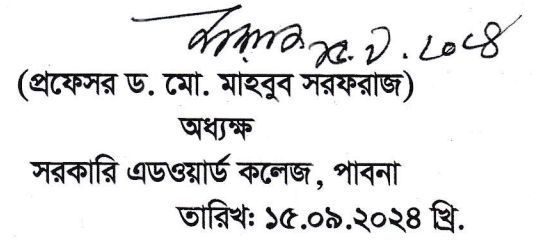 ১৫.৯.২০২৪
(প্রফেসর ড. মো. মাহবুব সরফরাজ)
অধ্যক্ষ
সরকারি এডওয়ার্ড কলেজ, পাবনা
তারিখ: ১৫.০৯.২০২৪ খ্রি.